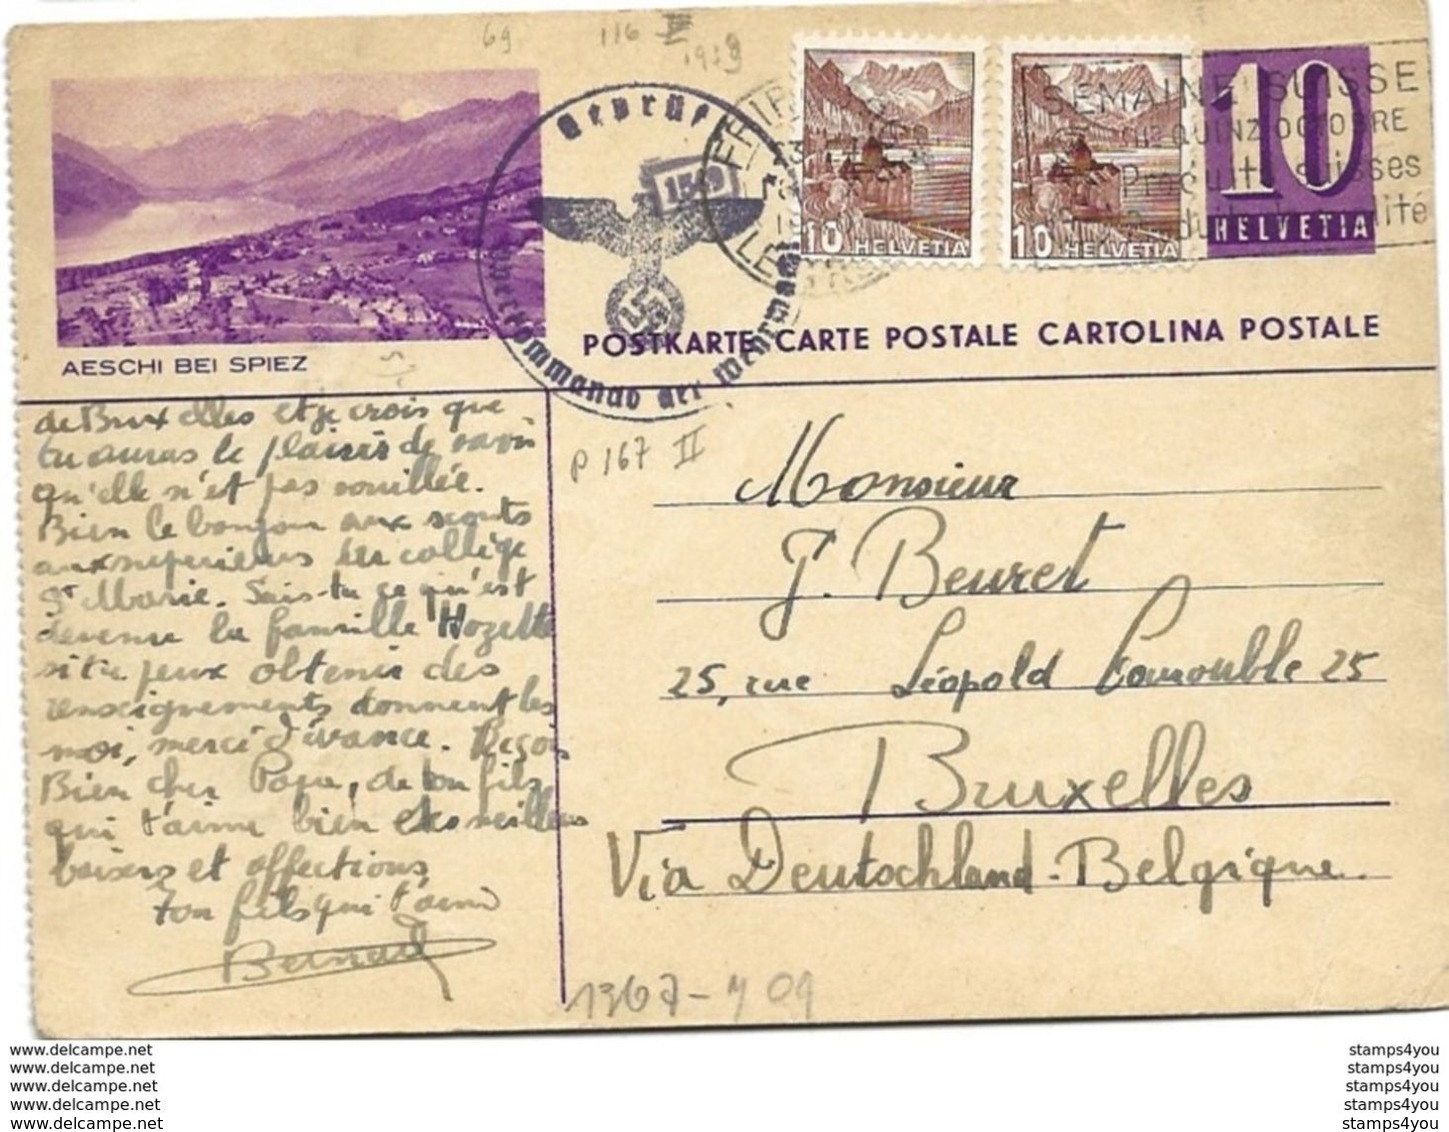 69 116 1939
Geprüft
Oberkommando der Wehrmacht
1549
FRIBOURG
10 HELVETIA
10 HELVETIA
10
HELVETIA
SEMAINE SUISSE
QUINZ. OCTOBRE
Produits suisses
Produits qualité
AESCHI BEI SPIEZ
POSTKARTE CARTE POSTALE CARTOLINA POSTALE
P 167 II
de Bruxelles et je crois que
tu auras le plaisir de savoir
qu'elle n'est pas rouillée.
Bien le bonjour aux scouts
aux superieurs du collège
St Marie. Sais-tu ce qu'est
devenue la famille Hozette
si tu peux obtenir des
renseignements donnent les
moi, merci d'ivance. Reçois
Bien cher Papa, de ton fils
qui t'aime bien et ses meilleurs
baisers et affections
Ton fils qui t'aime
Bernard
Monsieur
J. Beuret
25, rue Léopold Courouble 25
Bruxelles
Via Deutschland-Belgique.
1367-409
www.delcampe.net
www.delcampe.net
www.delcampe.net
www.delcampe.net
www.delcampe.net
stamps4you
stamps4you
stamps4you
stamps4you
stamps4you